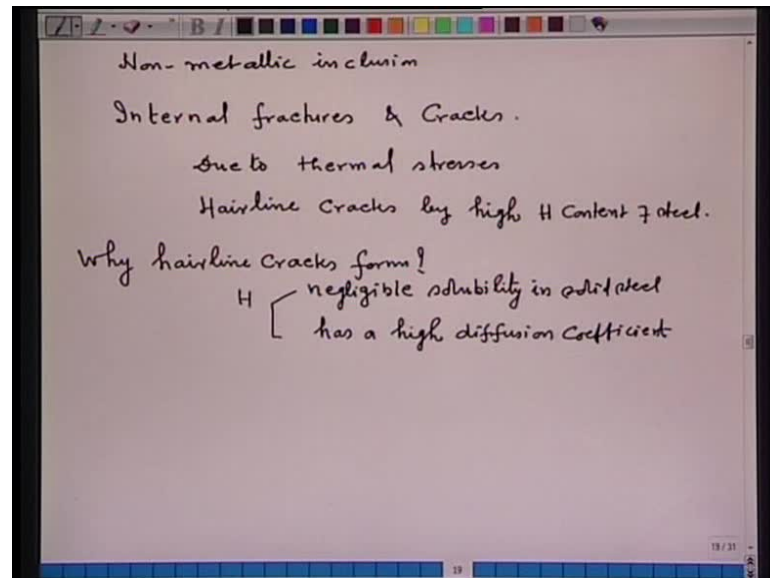 B I
Non-metallic inclusion
Internal fractures & Cracks.
Due to thermal stresses
Hairline Cracks by high H Content of steel.
Why hairline Cracks form?
H negligible solubility in solid steel
has a high diffusion Coefficient
19/31
19